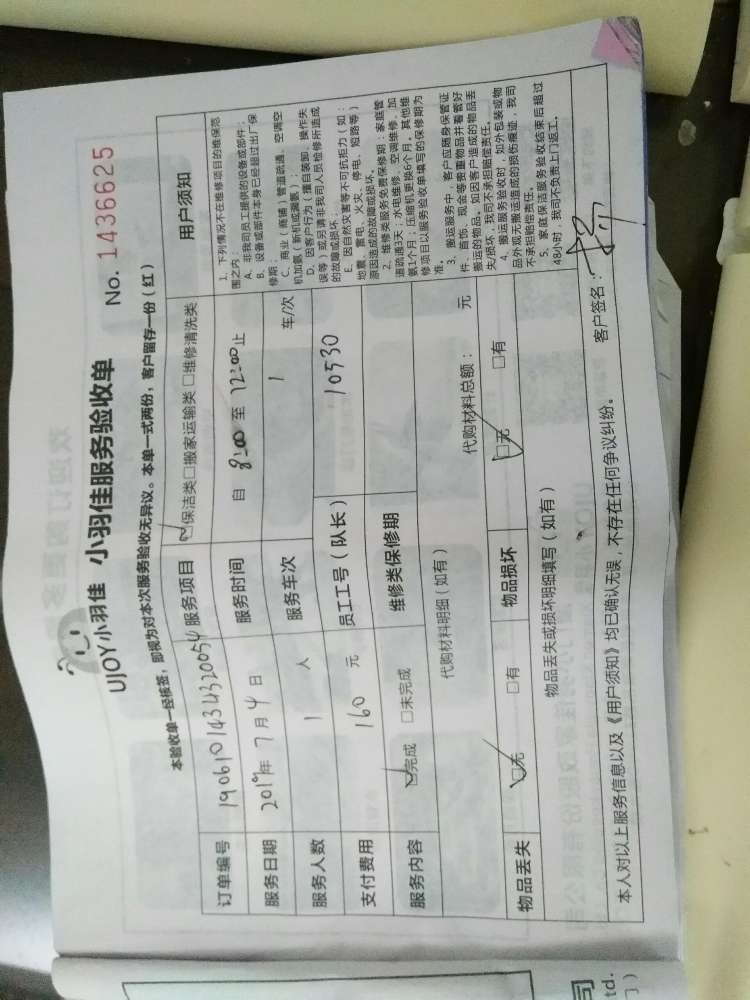 UJOY小羽佳 小羽佳服务验收单
No. 1436625
本验收单一经核签，即视为对本次服务验收无异议。本单一式两份，客户留存一份（红）
订单编号 1906101434320054 服务项目 ☑保洁类□搬家运输类□维修清洗类 用户须知
服务日期 2019年7月4日 服务时间 自 8:00 至 12:00止
服务人数 1 人 服务车次 1 车/次
支付费用 160 元 员工工号（队长） 10530
服务内容 ☑完成 □未完成 维修类保修期
代购材料明细（如有） 代购材料总额： 元
物品丢失 ☑无 □有 物品损坏 ☑无 □有
物品丢失或损坏明细填写（如有）
1、下列情况不在维修项目的维保范
围之内：
A、非我司员工提供的设备或部件；
B、设备或部件本身已经超过出厂保
修期；
C、商业（商铺）管道疏通、空调空
机加氨（新机或漏氨）；
D、因客户行为（擅自装卸、操作失
误等）或另请非我司人员检修所造成
的故障或损坏；
E、因自然灾害等不可抗拒力（如：
地震、雷电、火灾、停电、短路等）
原因造成的故障或损坏。
2、维修类服务免费保修期：家庭管
道疏通3天；水电维修、空调维修、加
氨1个月；压缩机更换6个月。其他维
修项目以服务验收单填写的保修期为
准。
3、搬运服务中，客户应随身保管证
件、首饰、现金等贵重物品并看管好
搬运的物品。如因客户造成的物品丢
失/损坏，我司不承担赔偿责任。
4、搬运服务验收时，如外包装或物
品外观无搬运造成的损伤痕迹，我司
不承担赔偿责任。
5、家庭保洁服务验收结束后超过
48小时，我司不负责上门返工。
本人对以上服务信息以及《用户须知》均已确认无误，不存在任何争议纠纷。 客户签名：
司
td.